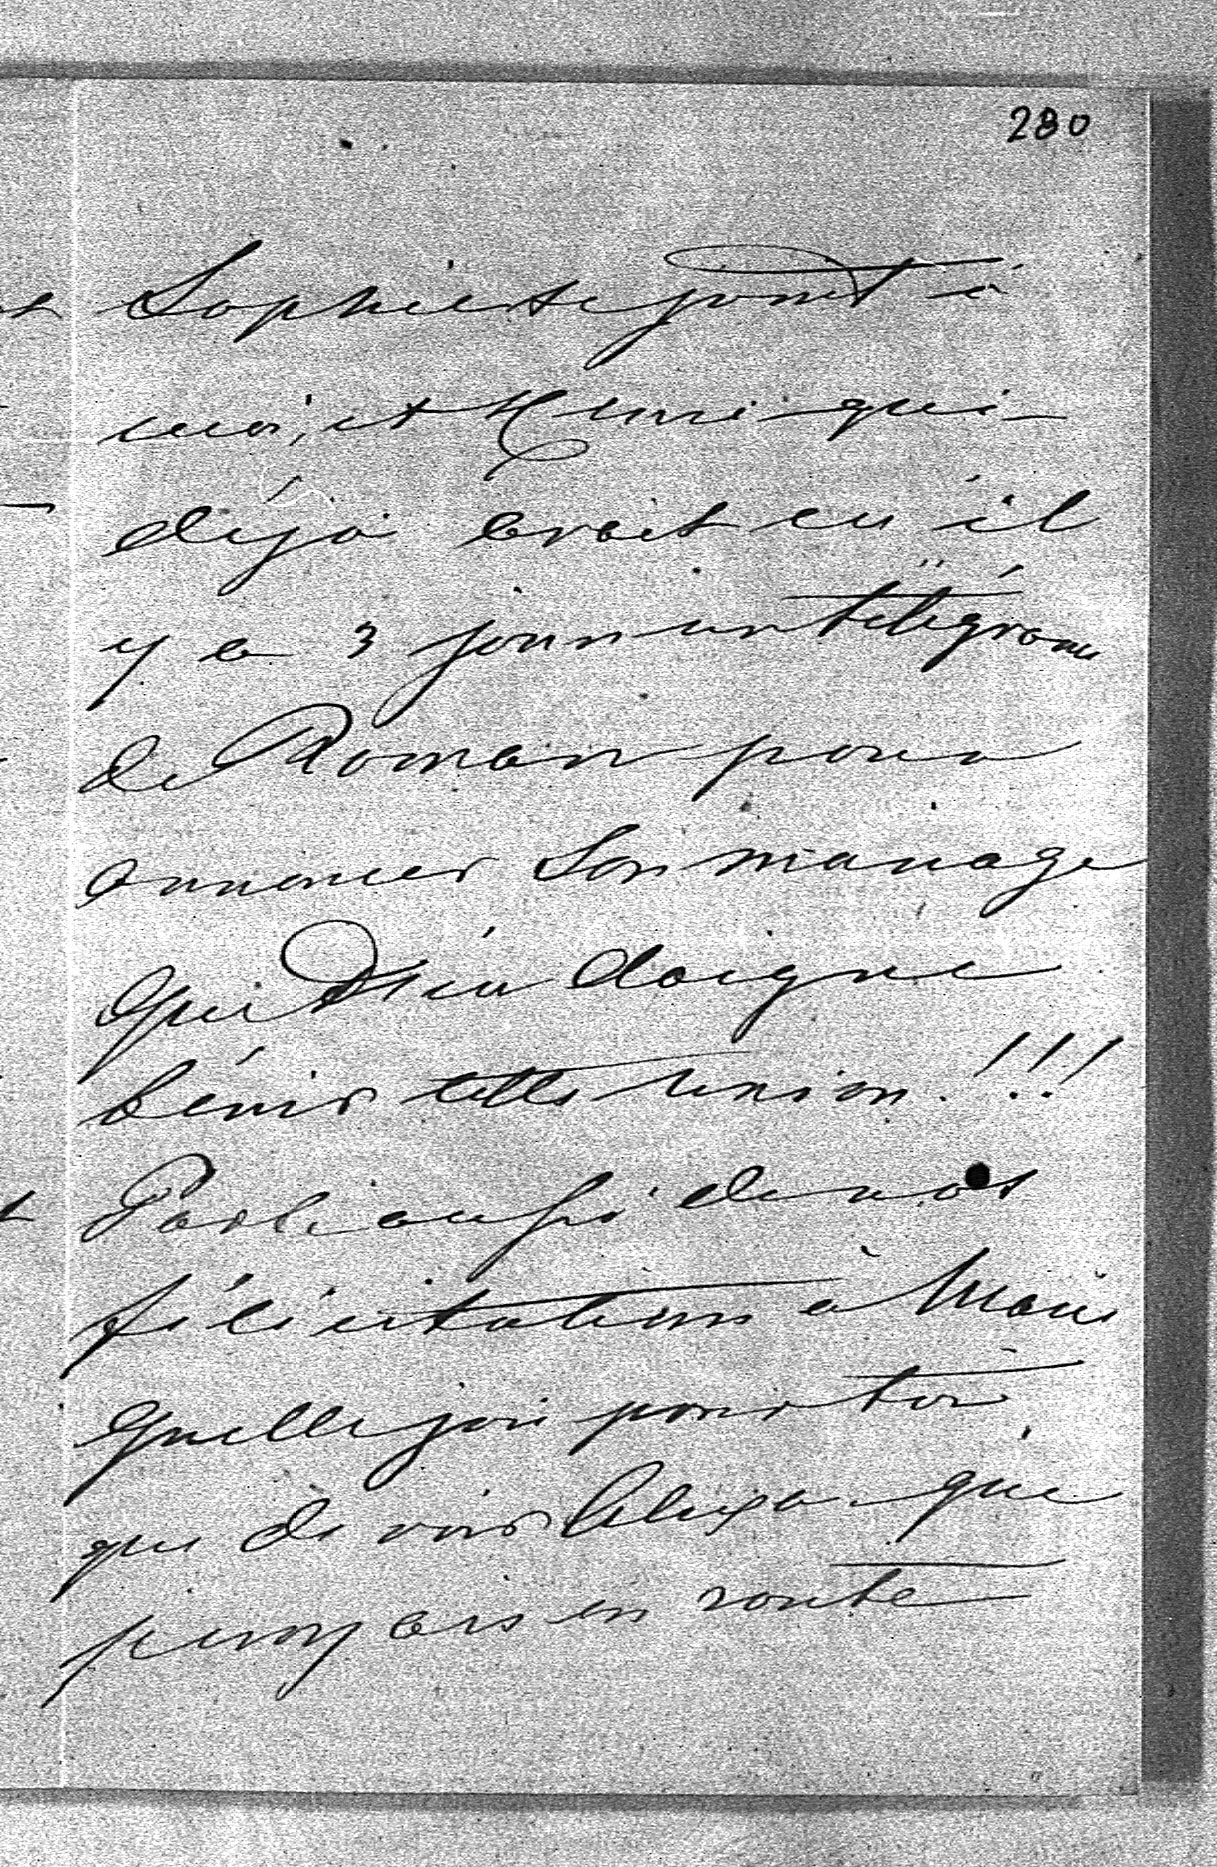 280
Sophie se joint à
moi, et Henri qui
déjà avait eu il
y a 3 jours un télégrame
de Roman pour
annoncer son mariage
que Dieu daigne
bénir cette union!!!
Parle aussi de nos
félicitations à Marie
quelle joie pour toi,
que de voir Alexa que
je croyais en route